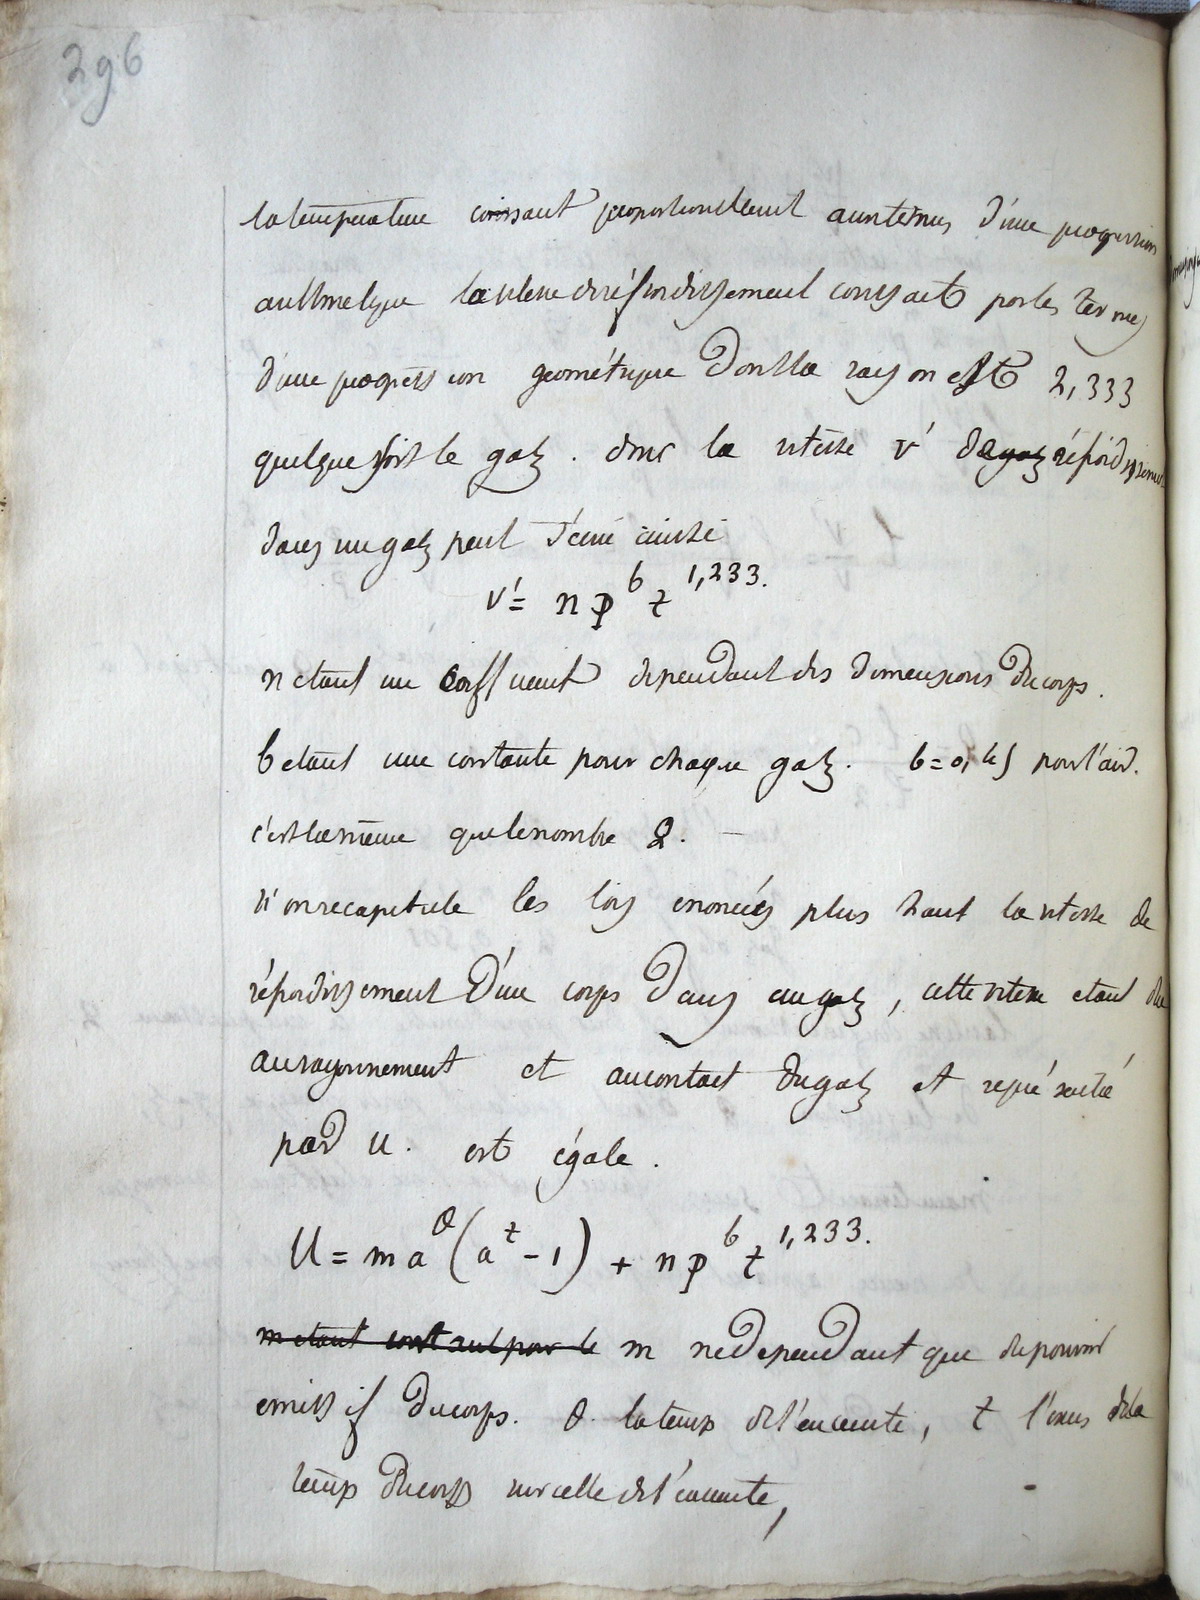 296
la temperature croissant proportionellemt aux termes d'une progression
arithmetique la vitesse du réfroidissement croissait par les termes
d'une progression geométrique dont la raison est 2,333
quelque soit le gaz. donc la vitesse v' de gaz réfroidissement
dans un gaz peut s'ecrire ainsi
v' = n p^b t^1,233.
n etant un coefficient dependant des dimensions du corps.
b etant une constante pour chaque gaz. b = 0,45 pour l'air.
c'est la même que le nombre 2.
si on recapitule les lois enoncées plus haut la vitesse de
réfroidissement d'un corps dans un gaz, cette vitesse etant due
au rayonnement et au contact du gaz et représenté
par U. est égale.
U = m a^θ (a^t - 1) + n p^b t^1,233.
m etant constant pour le m ne dependant que du pouvoir
emissif du corps. θ. la temp de l'enceinte, t l'exces de la
temp du corps sur celle de l'enceinte,